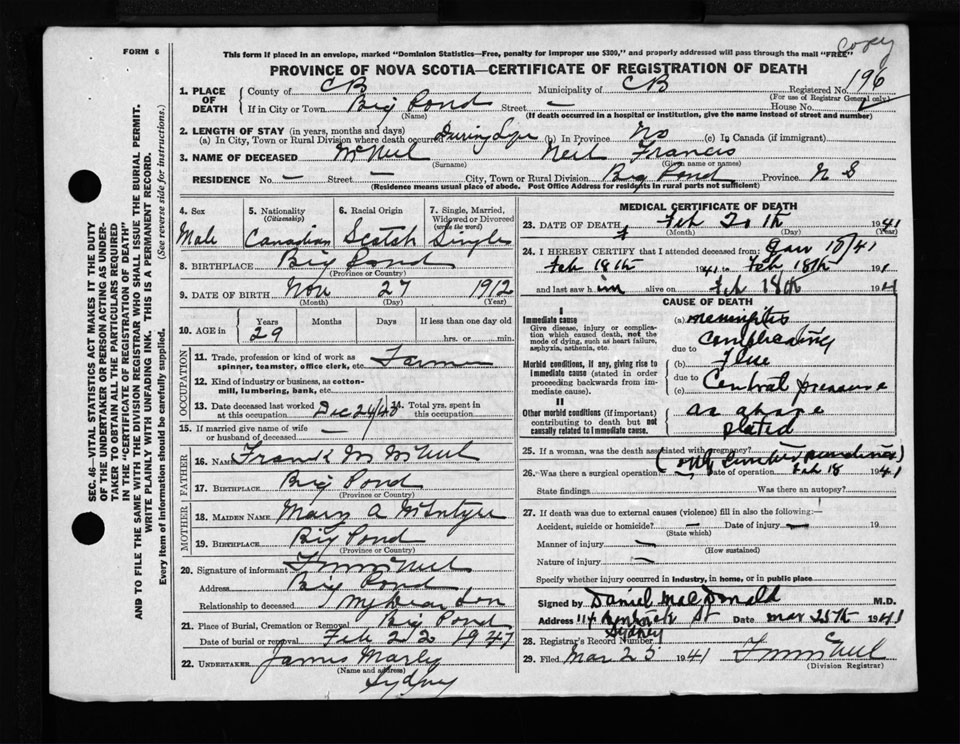 FORM 6
Copy
This form if placed in an envelope, marked "Dominion Statistics—Free, penalty for improper use $300," and properly addressed will pass through the mail "FREE"
PROVINCE OF NOVA SCOTIA—CERTIFICATE OF REGISTRATION OF DEATH
1. PLACE OF DEATH County of CB Municipality of CB Registered No. 196
(For use of Registrar General only)
If in City or Town Big Pond Street — House No.
(Name) (If death occurred in a hospital or institution, give the name instead of street and number)
2. LENGTH OF STAY (in years, months and days)
(a) In City, Town or Rural Division where death occurred During Life (b) In Province No (c) In Canada (if immigrant)
3. NAME OF DECEASED McNeil Neil Francis
(Surname) (Given name or names)
RESIDENCE No. — Street — City, Town or Rural Division Big Pond Province N S
(Residence means usual place of abode. Post Office Address for residents in rural parts not sufficient)
4. Sex Male
5. Nationality (Citizenship) Canadian
6. Racial Origin Scotch
7. Single, Married, Widowed or Divorced (write the word) Single
8. BIRTHPLACE Big Pond
(Province or Country)
9. DATE OF BIRTH Nov 27 1912
(Month) (Day) (Year)
10. AGE in Years Months Days If less than one day
29 hrs. or min.
OCCUPATION
11. Trade, profession or kind of work as spinner, teamster, office clerk, etc. Farmer
12. Kind of industry or business, as cotton-mill, lumbering, bank, etc.
13. Date deceased last worked at this occupation Dec 24/40 Total yrs. spent in this occupation
15. If married give name of wife or husband of deceased —
FATHER
16. NAME Frank M McNeil
17. BIRTHPLACE Big Pond
(Province or Country)
MOTHER
18. MAIDEN NAME Mary A McIntyre
19. BIRTHPLACE Big Pond
(Province or Country)
20. Signature of informant F M McNeil
Address Big Pond
Relationship to deceased My Dear Son
21. Place of Burial, Cremation or Removal Big Pond
Date of burial or removal Feb 22 1941
22. UNDERTAKER James
(Name and address)
Sydney
MEDICAL CERTIFICATE OF DEATH
23. DATE OF DEATH Feb 20th 1941
(Month) (Day) (Year)
24. I HEREBY CERTIFY that I attended deceased from: Jan 10/41
Feb 18th 1941 to Feb 18th 191
and last saw him alive on Feb 18th 1941
CAUSE OF DEATH
I
Immediate cause
Give disease, injury or complication which caused death, not the mode of dying, such as heart failure, asphyxia, asthenia, etc.
(a) meningitis
complicating
due to
(b) Flue
Morbid conditions, if any, giving rise to immediate cause (stated in order proceeding backwards from immediate cause).
due to
(c) Central pressure
II
Other morbid conditions (if important) contributing to death but not causally related to immediate cause.
as above
stated
25. If a woman, was the death associated with pregnancy?
26. Was there a surgical operation? Date of operation Feb 18 1941
State findings Was there an autopsy?
27. If death was due to external causes (violence) fill in also the following:—
Accident, suicide or homicide? — Date of injury — 19
(State which)
Manner of injury —
(How sustained)
Nature of injury —
Specify whether injury occurred in industry, in home, or in public place
Signed by Daniel MacDonald M.D.
Address 114 St Date Mar 25th 1941
Sydney
28. Registrar's Record Number
29. Filed Mar 25 1941 F M McNeil
(Division Registrar)
SEC. 46—VITAL STATISTICS ACT MAKES IT THE DUTY
OF THE UNDERTAKER OR PERSON ACTING AS UNDER-
TAKER TO OBTAIN ALL THE PARTICULARS REQUIRED
IN THE "CERTIFICATE OF REGISTRATION OF DEATH"
AND TO FILE THE SAME WITH THE DIVISION REGISTRAR WHO SHALL ISSUE THE BURIAL PERMIT.
WRITE PLAINLY WITH UNFADING INK. THIS IS A PERMANENT RECORD.
Every item of information should be carefully supplied. (See reverse side for instructions.)